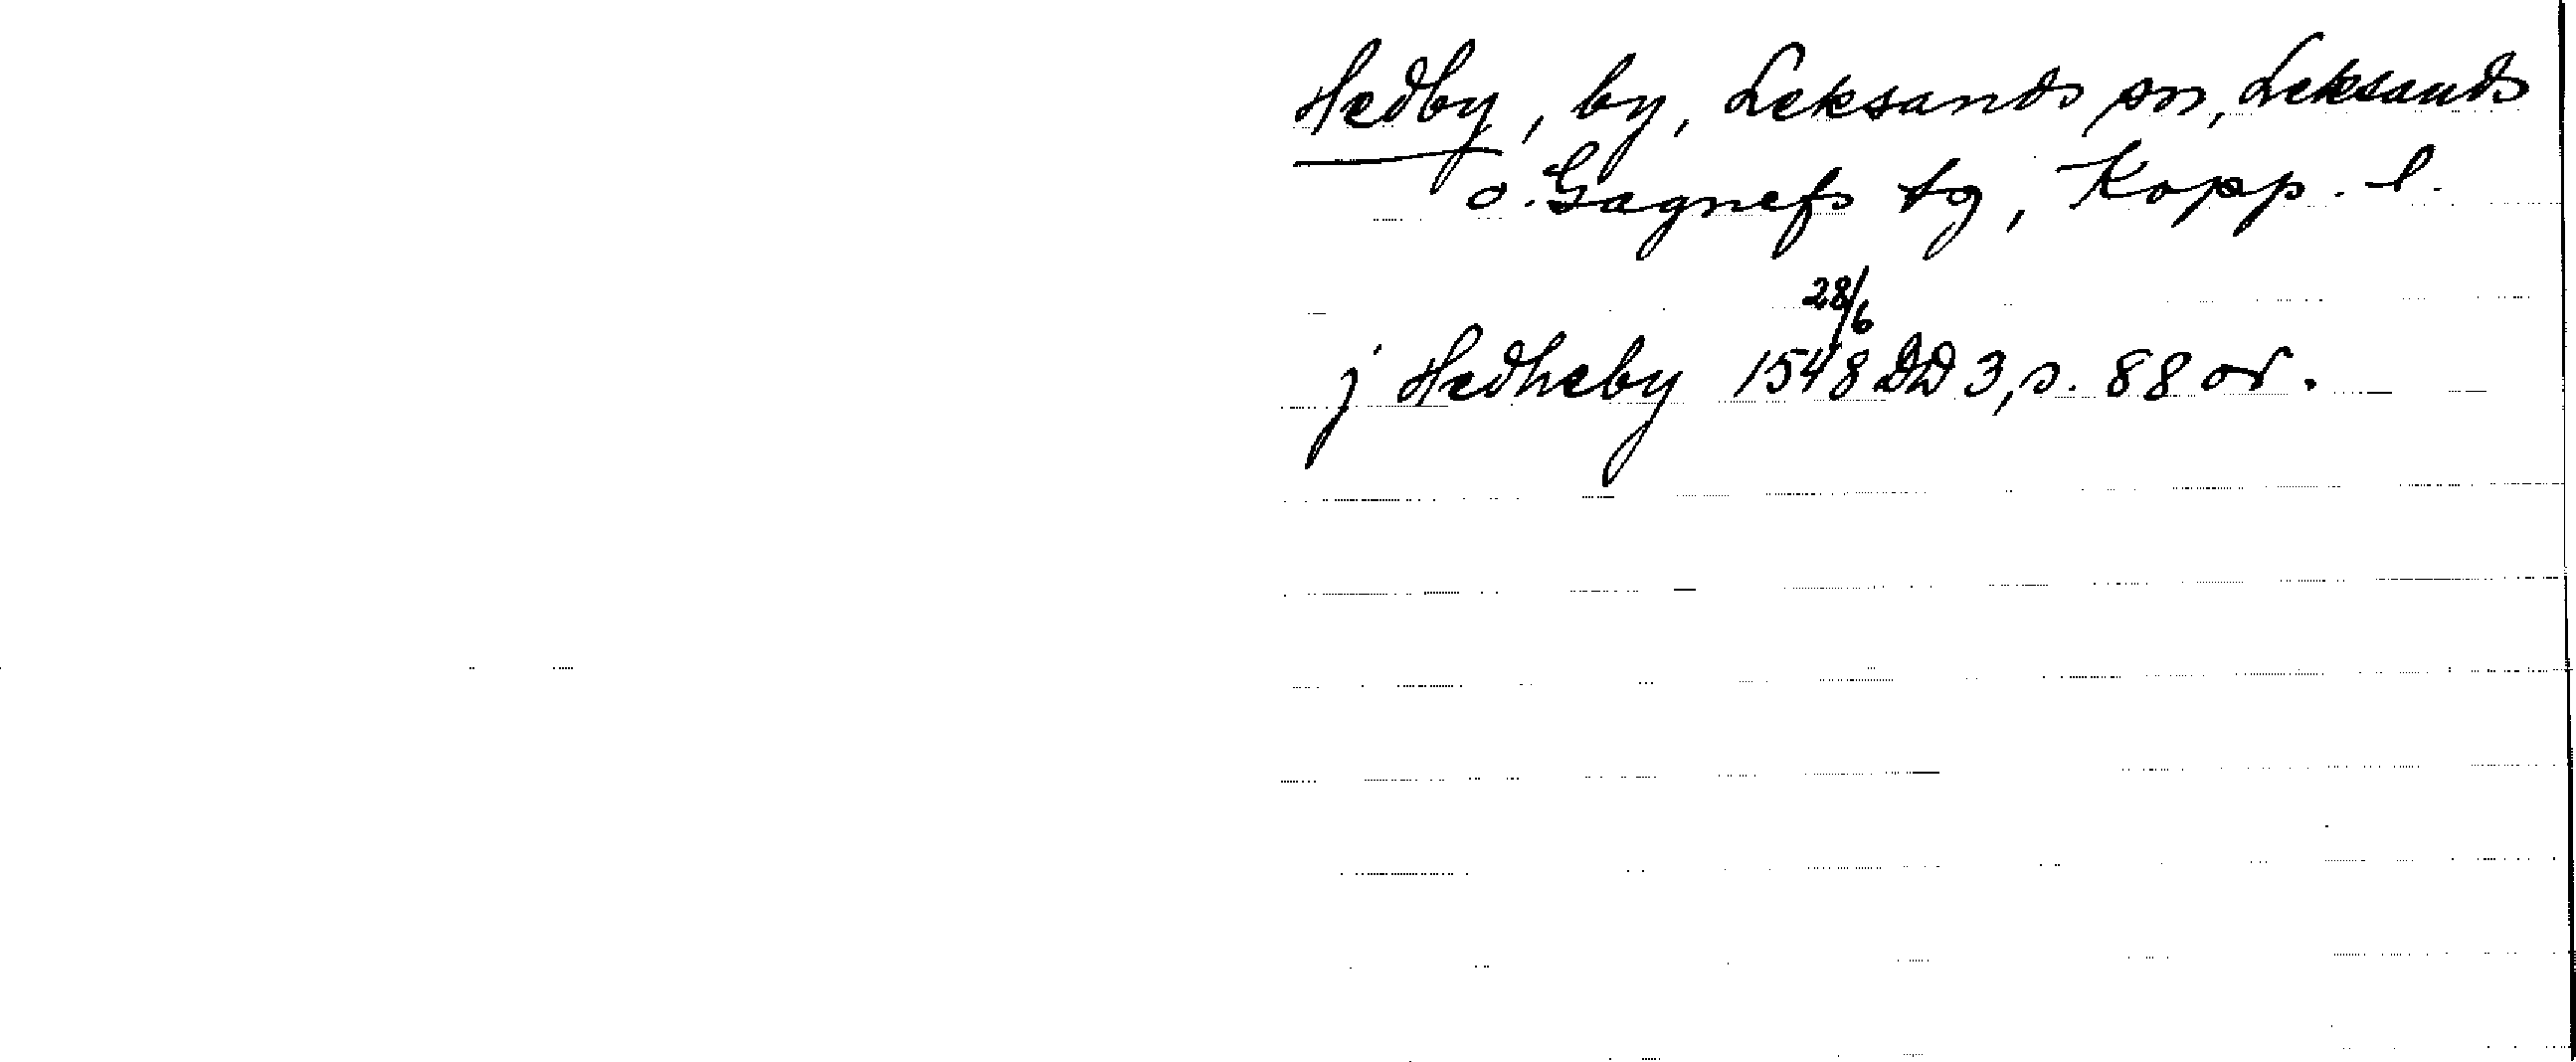 Hedby, by, Leksands sn, Leksands
o. Gagnefs tg, Kopp. l.
28/6
j Hedheby 1548 DD 3, s. 88 or.